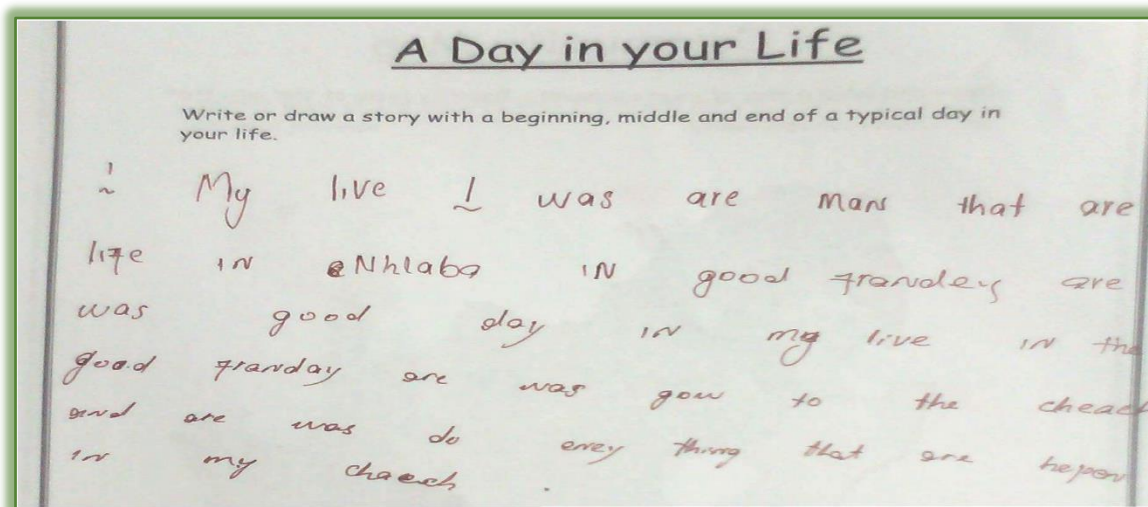 A Day in your Life
Write or draw a story with a beginning, middle and end of a typical day in
your life.
My live I was are man that are
life in eNhlaba in good frandey are
was good day in my live in the
good franday are was gow to the cheach
and are was do enrey thing that are hepen
in my chaech.